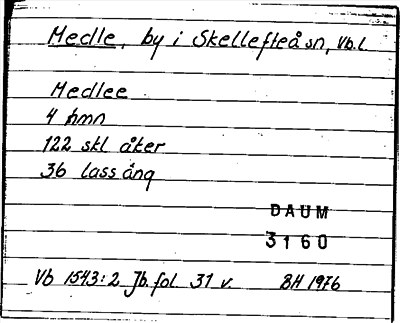 Medle, by i Skellefteå sn, Vb.l.
Medlee
4 hmn
122 skl åker
36 lass äng
DAUM
3160
Vb 1543:2 Jb.fol. 31 v. BH 1976